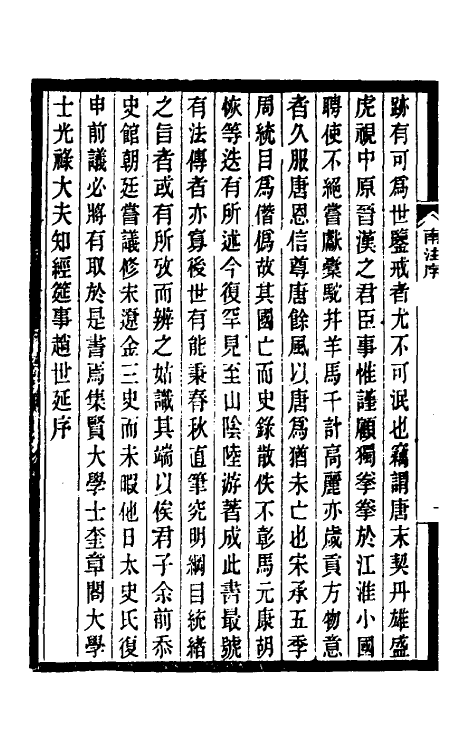 跡有可爲世鑒戒者尤不可泯也竊謂唐末契丹雄盛
虎視中原晉漢之君臣事惟謹顧獨拳拳於江淮小國
聘使不絕嘗獻橐駝幷羊馬千計高麗亦歲貢方物意
者久服唐恩信尊唐餘風以唐爲猶未亡也宋承五季
周統目爲僭僞故其國亡而史錄散佚不彰馬元康胡
恢等迭有所述今復罕見至山陰陸游著成此書最號
有法傳者亦寡後世有能秉春秋直筆究明綱目統緖
之旨者或有所攷而辨之姑識其端以俟君子余前忝
史館朝廷嘗議修宋遼金三史而未暇他日太史氏復
申前議必將有取於是書焉集賢大學士奎章閣大學
士光祿大夫知經筵事趙世延序
南注序
一